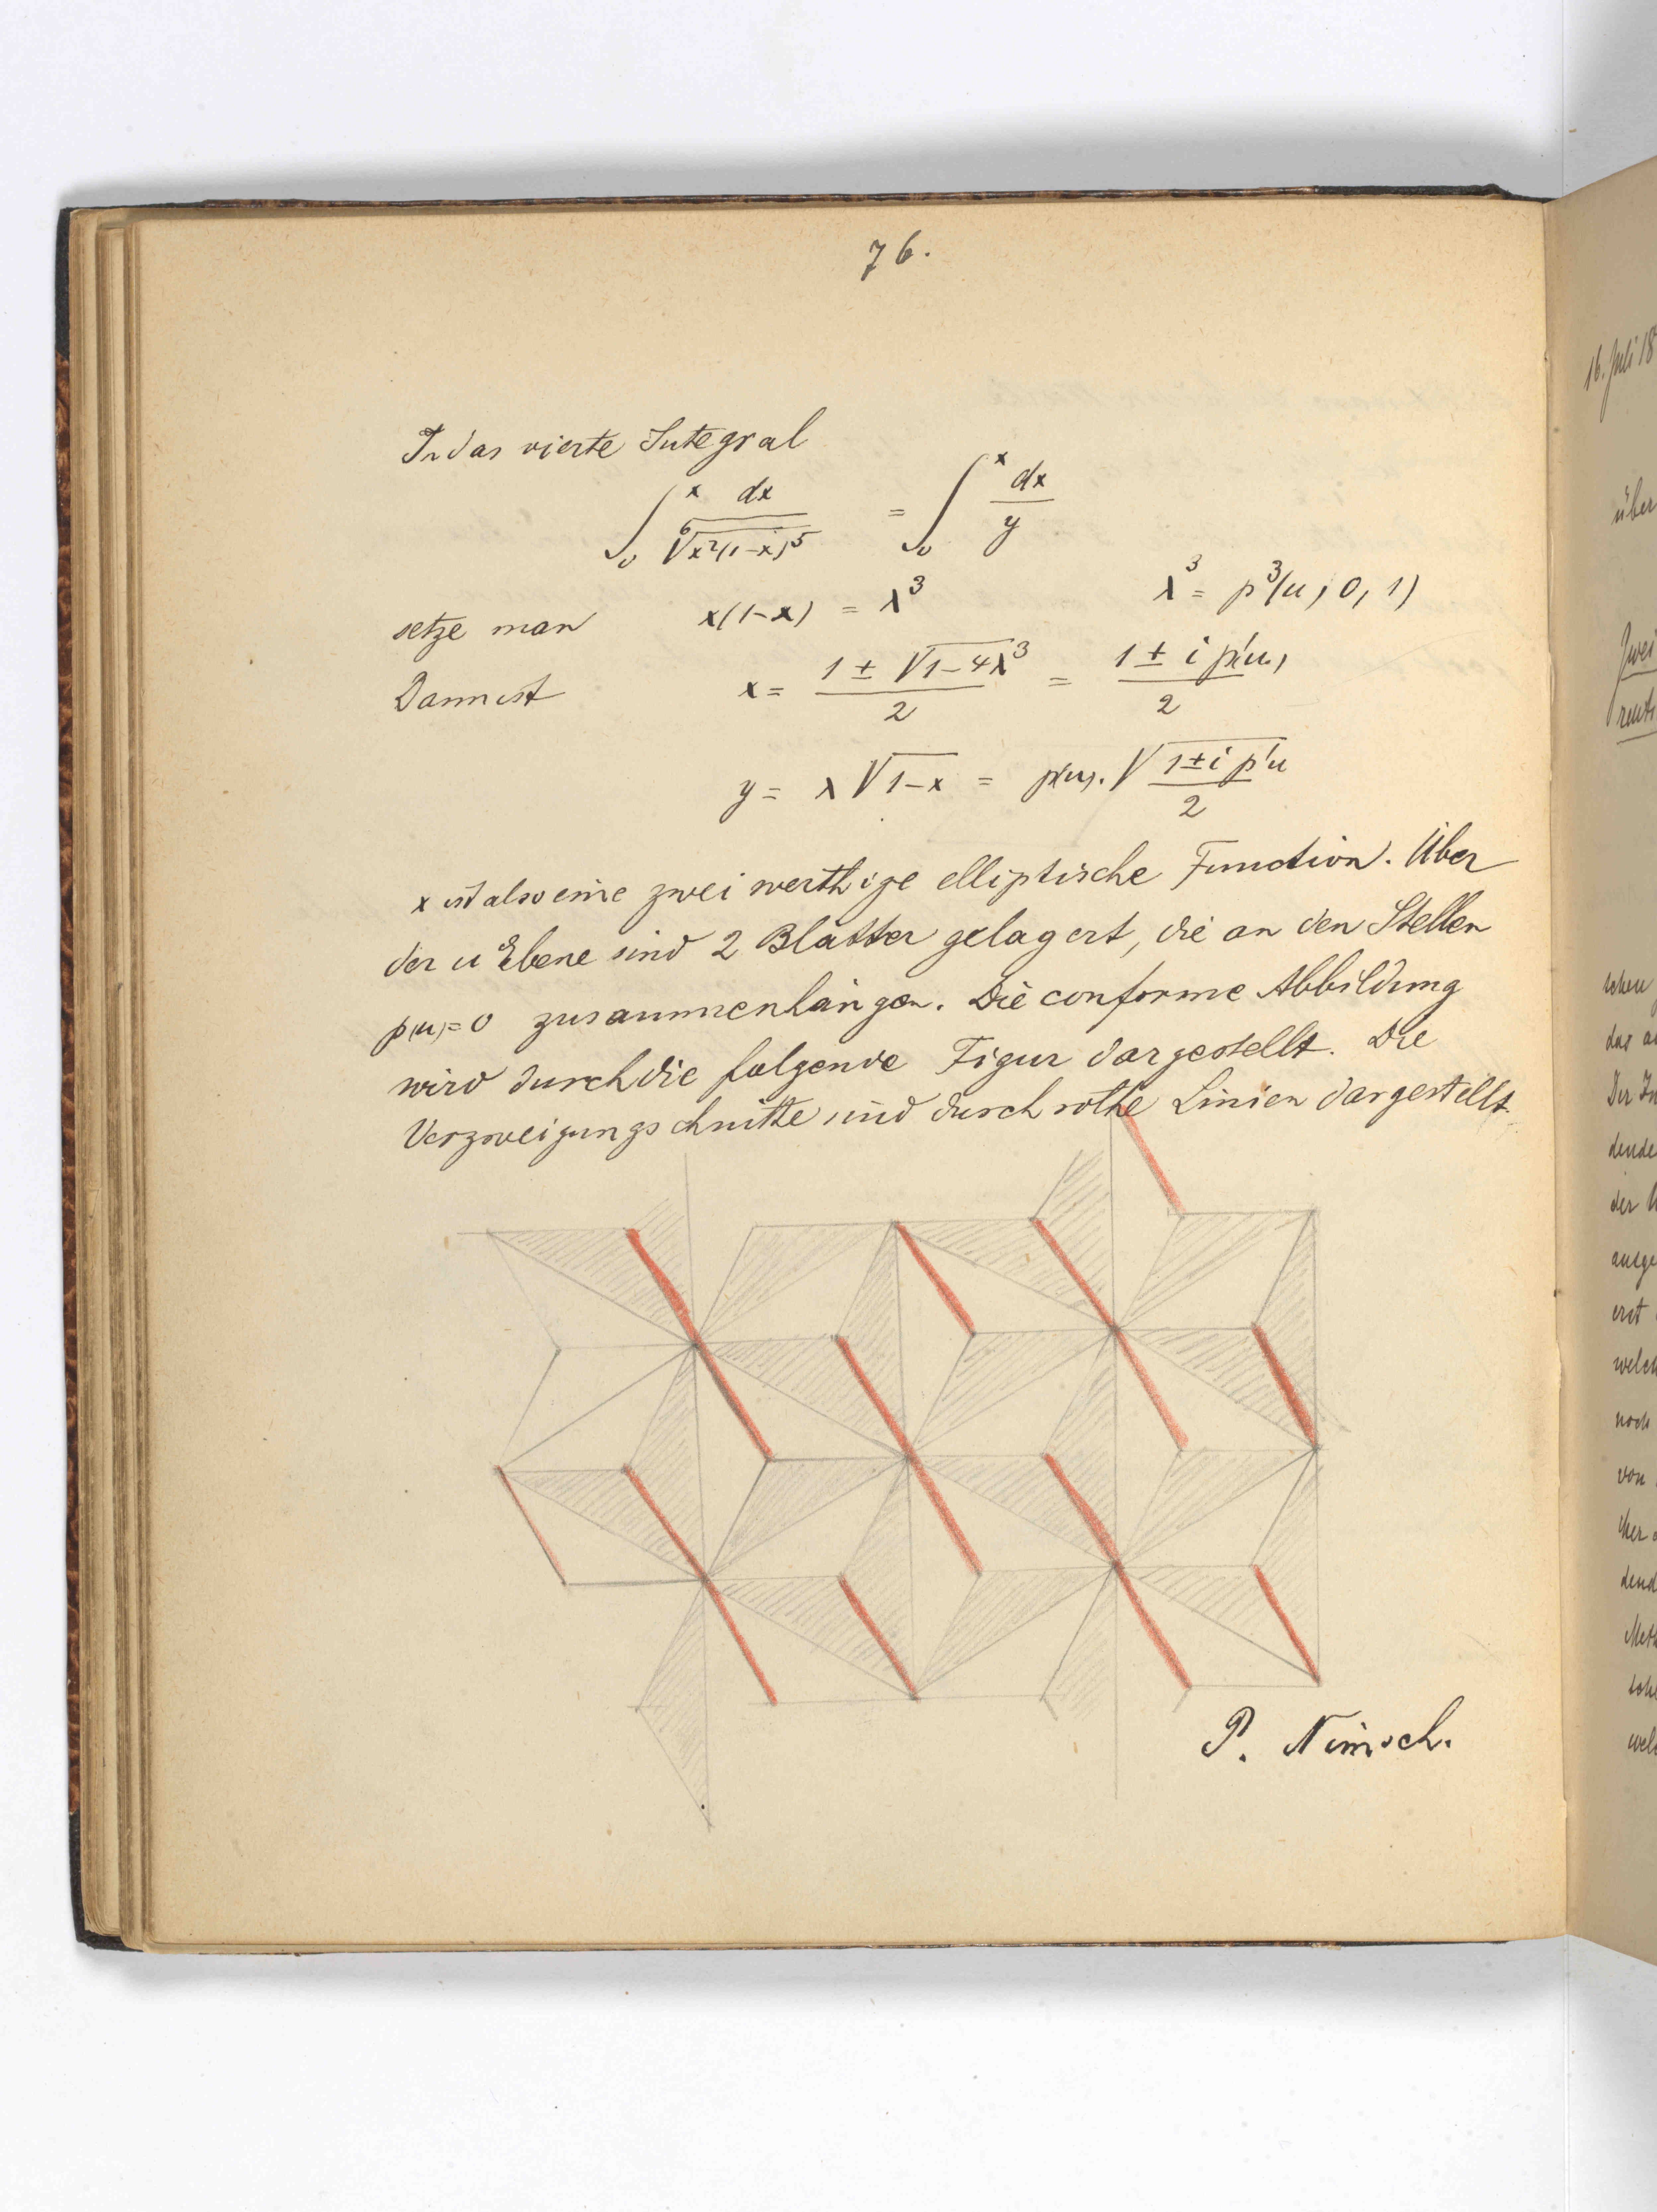 76.
In das vierte Integral
∫₀ˣ dx / ⁶√(x²(1-x)⁵) = ∫₀ˣ dx / y
setze man x(1-x) = λ³ λ³ = p³(u, 0, 1)
Dann ist x = (1 ± √(1-4λ³)) / 2 = (1 ± i p'(u)) / 2
y = λ √(1-x) = p(u). √((1 ± i p'u) / 2)
x ist also eine zwei werthige elliptische Function. Über
der u Ebene sind 2 Blätter gelagert, die an den Stellen
p(u)=0 zusammenhängen. Die conforme Abbildung
wird durch die folgende Figur dargestellt. Die
Verzweigungschnitte sind durch rothe Linien dargestellt.
P. Nimsch.
16. Juli 18
über
Zwei
das
Der
der
erst
noch
von